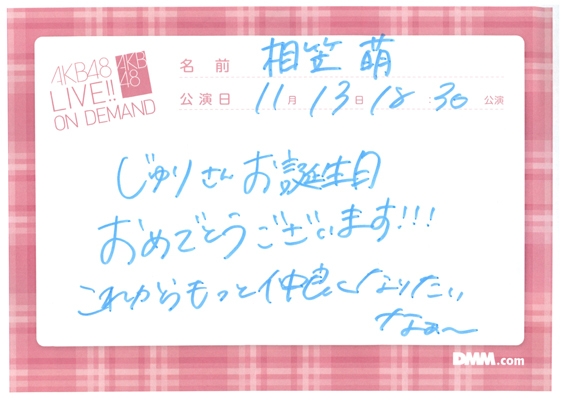 AKB48
LIVE!!
ON DEMAND
AKB
48
名前 相笠萌
公演日 11月13日18:30公演
じゅりさんお誕生日
おめでとうございます!!!
これからもっと仲良くなりたい
なぁ〜
DMM.com